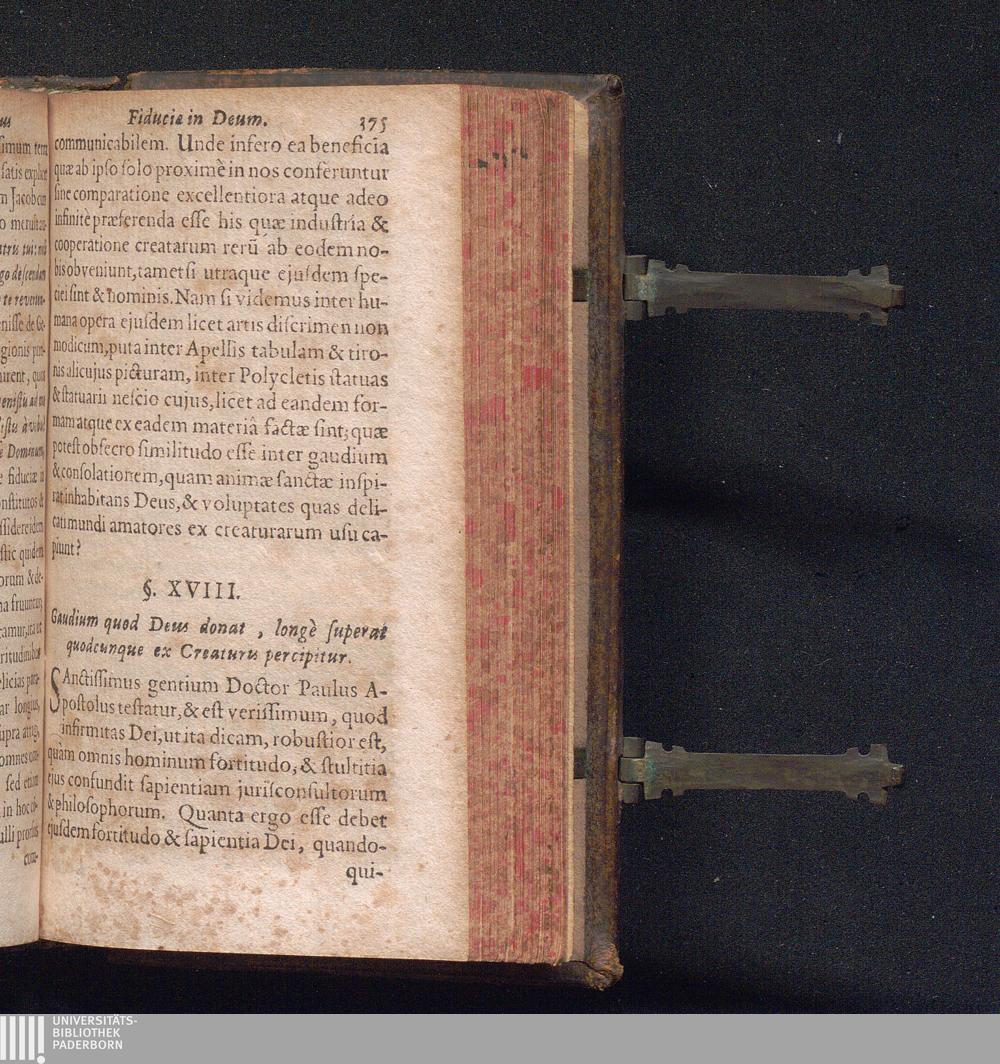 Fiduciæ in Deum. 375
communicabilem. Unde infero ea beneficia
quæ ab ipſo ſolo proximè in nos conferuntur
ſine comparatione excellentiora atque adeo
infinitè præferenda eſſe his quæ induſtria &
cooperatione creatarum rerũ ab eodem no-
bis obveniunt, tametſi utraque ejuſdem ſpe-
ciei ſint & nominis. Nam ſi videmus inter hu-
mana opera ejuſdem licet artis diſcrimen non
modicum, puta inter Apellis tabulam & tiro-
nis alicujus picturam, inter Polycletis ſtatuas
& ſtatuarii neſcio cujus, licet ad eandem for-
mam atque ex eadem materiâ factæ ſint; quæ
poteſt obſecro ſimilitudo eſſe inter gaudium
& conſolationem, quam animæ ſanctæ inſpi-
rat inhabitans Deus, & voluptates quas deli-
cati mundi amatores ex creaturarum uſu ca-
piunt?
§. XVIII.
Gaudium quod Deus donat, longè ſuperat
quodcunque ex Creaturis percipitur.
SAnctiſſimus gentium Doctor Paulus A-
poſtolus teſtatur, & eſt veriſſimum, quod
infirmitas Dei, ut ita dicam, robuſtior eſt,
quàm omnis hominum fortitudo, & ſtultitia
ejus confundit ſapientiam juriſconſultorum
& philoſophorum. Quanta ergo eſſe debet
ejuſdem fortitudo & ſapientia Dei, quando-
qui-
UNIVERSITÄTS-
BIBLIOTHEK
PADERBORN